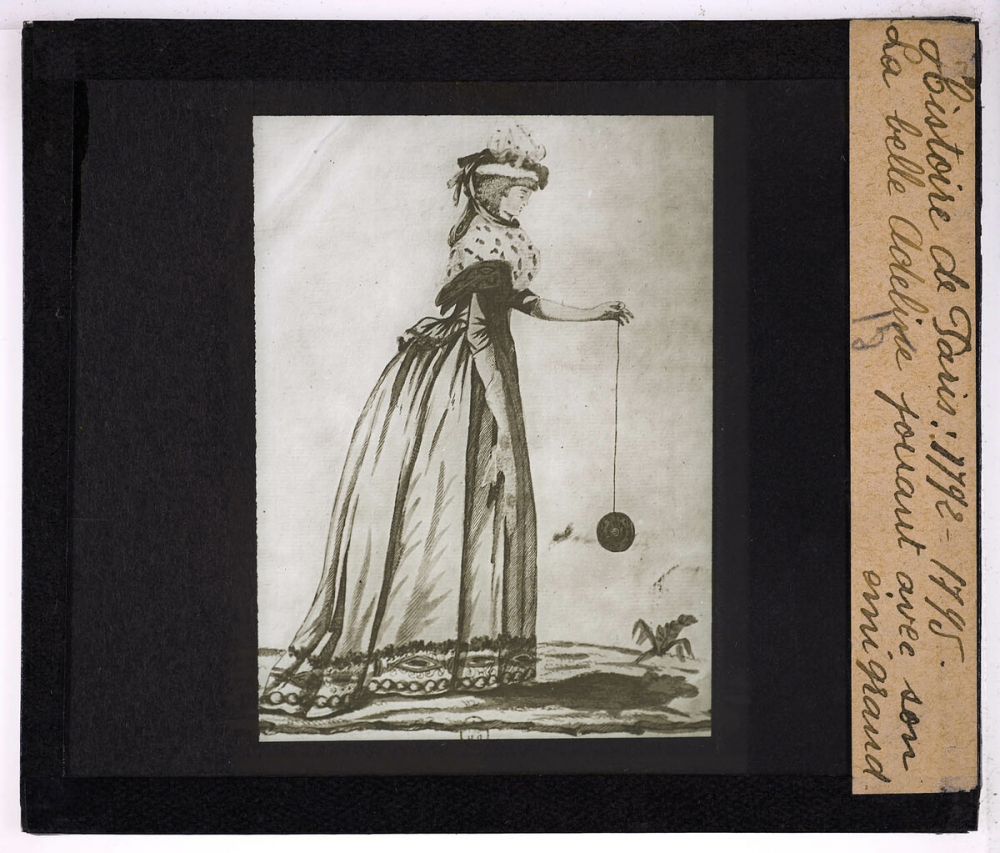 Histoire de Paris: 1792-1795.
La belle Adeline jouant avec son
emigrand
13